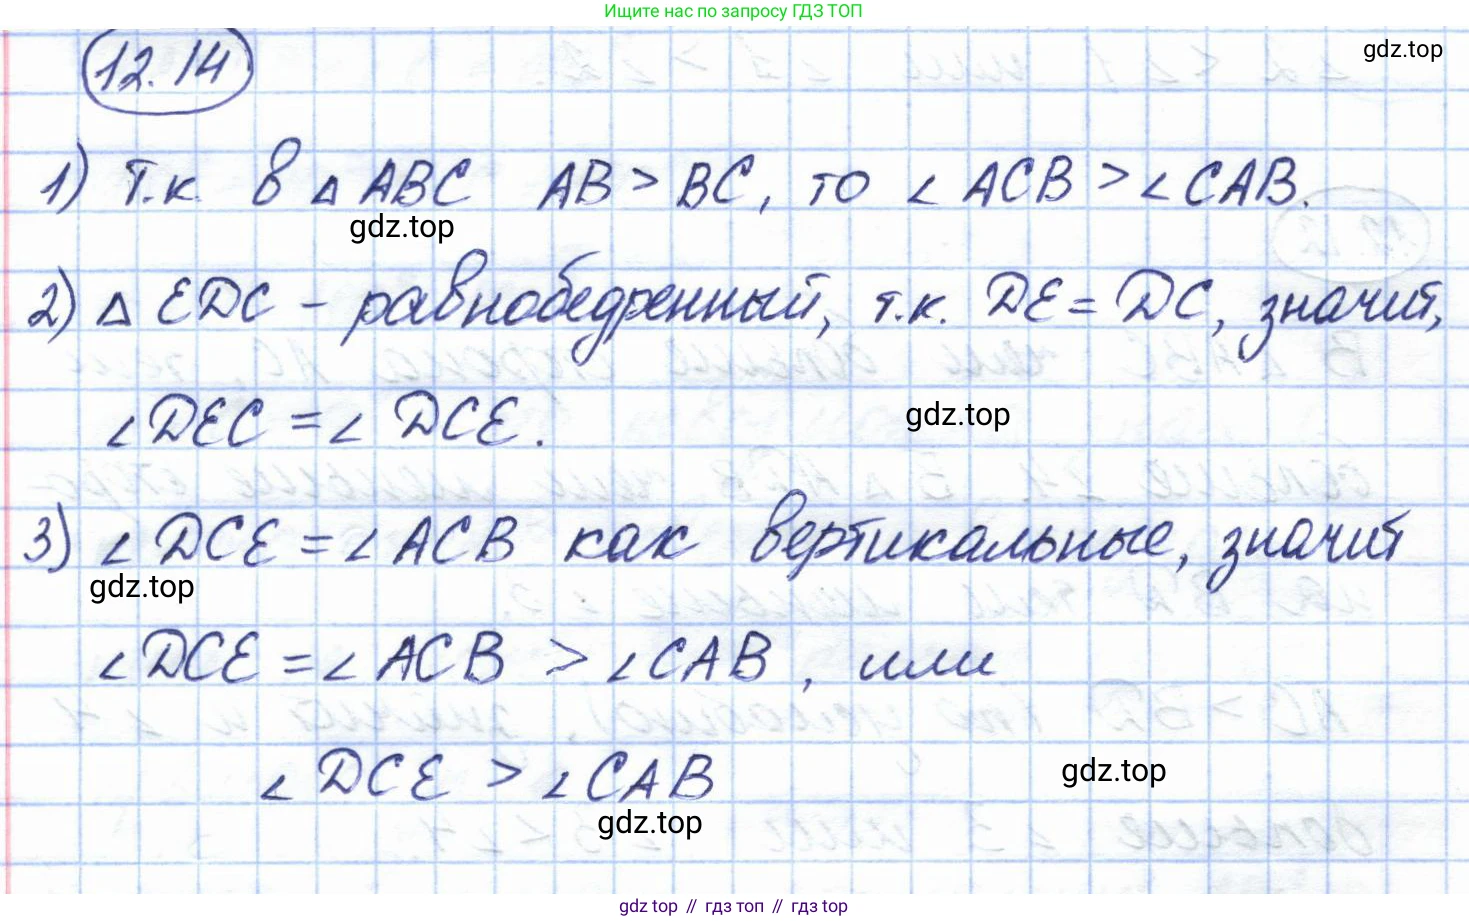 Ищите нас по запросу ГДЗ ТОП
12.14
gdz.top
1) т.к. в △ ABC AB > BC, то ∠ ACB > ∠ CAB.
gdz.top
2) △ EDC – равнобедренный, т.к. DE = DC, значит,
∠ DEC = ∠ DCE.
gdz.top
3) ∠ DCE = ∠ ACB как вертикальные, значит
gdz.top
∠ DCE = ∠ ACB > ∠ CAB, или
∠ DCE > ∠ CAB
gdz.top
gdz.top
gdz top // гдз топ // гдз top